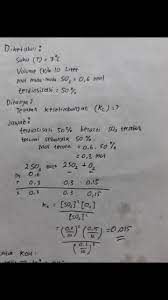 Diketahui:
Suhu (T) = °C
Volume (V) = 10 Liter
mol mula-mula SO₃ = 0,6 mol
terdisosiasi = 50%
Ditanya?
Tetapan kesetimbangan (Kc) = ?
Jawab:
terdisosiasi 50% berarti SO₃ terurai
sebanyak 50%
mol terurai = 0,6 . 50%
= 0,3 mol
2SO₃ ⇌ 2SO₂ + O₂
M 0,6
r 0,3 0,3 0,15
s 0,3 0,3 0,15
Kc = [SO₂]² [O₂]
[SO₃]²
= (0,3/10)² (0,15/10) = 0,015
(0,3/10)²